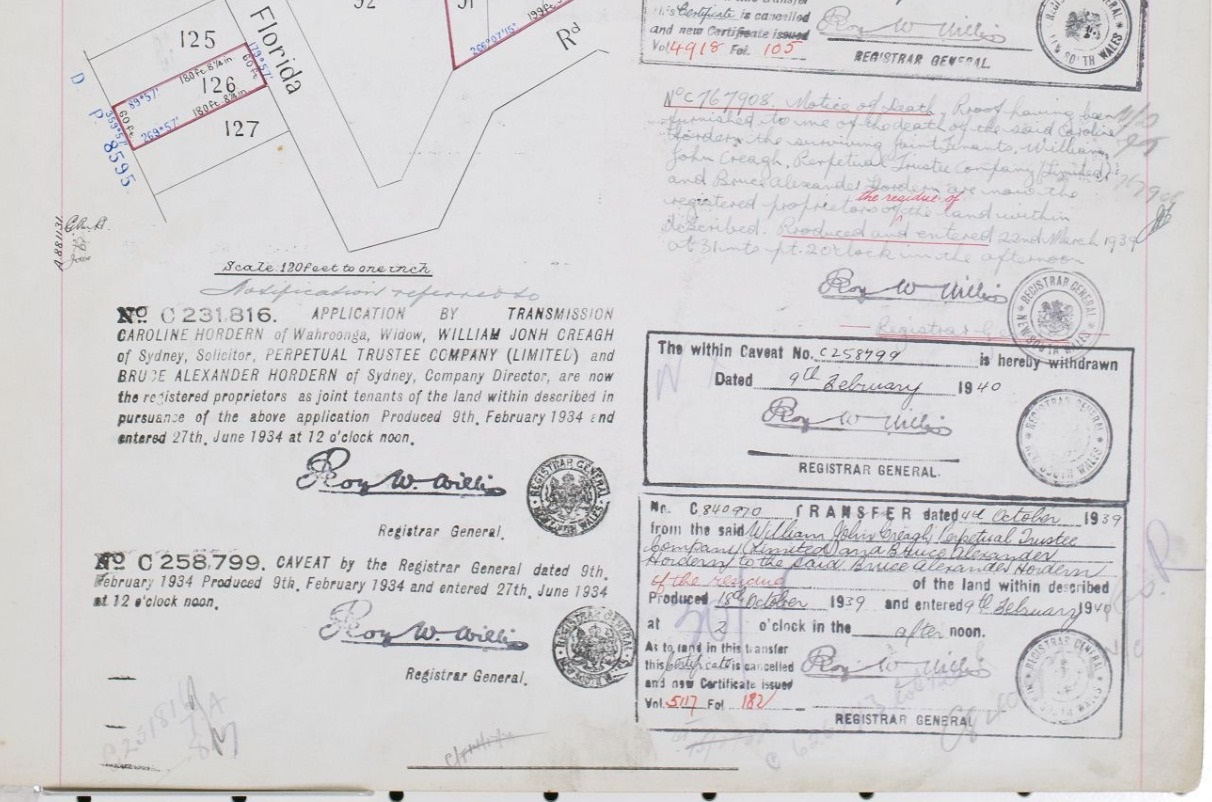 92
91
199ft
266°07'15"
Rd
Florida
125
179°57'
180 ft 8¼ in
60 ft
126
89°57'
180 ft 8¼ in
60 ft
269°57'
359°57'
127
D. P. 8595
A 881131
Scale: 120 feet to one inch
Notification referred to
No C 231,816. APPLICATION BY TRANSMISSION
CAROLINE HORDERN of Wahroonga, Widow, WILLIAM JONH CREAGH
of Sydney, Solicitor, PERPETUAL TRUSTEE COMPANY (LIMITED) and
BRUCE ALEXANDER HORDERN of Sydney, Company Director, are now
the registered proprietors as joint tenants of the land within described in
pursuance of the above application Produced 9th, February 1934 and
entered 27th, June 1934 at 12 o'clock noon.
Roy W. Willis
Registrar General.
REGISTRAR GENERAL
NEW SOUTH WALES
No C 258,799. CAVEAT by the Registrar General dated 9th.
February 1934 Produced 9th, February 1934 and entered 27th, June 1934
at 12 o'clock noon.
Roy W. Willis
Registrar General.
REGISTRAR GENERAL
NEW SOUTH WALES
this Certificate is cancelled
and new Certificate issued
Vol 4918 Fol. 105
Roy W Willis
REGISTRAR GENERAL
NEW SOUTH WALES
No C 767908. Notice of Death, Proof having been
furnished to me of the death of the said Caroline
Hordern the surviving Joint Tenants, William
John Creagh, Perpetual Trustee Company (Limited)
and Bruce Alexander Hordern are now the
registered proprietors of the residue of the land within
described. Produced and entered 22nd March 1939
at 31 mts pt. 2 o'clock in the afternoon
Roy W Willis
Registrar G
REGISTRAR GENERAL
NEW SOUTH WALES
The within Caveat No. C258799 is hereby withdrawn
Dated 9th February 1940
Roy W Willis
REGISTRAR GENERAL.
REGISTRAR GENERAL
NEW SOUTH WALES
No. C 840970 TRANSFER dated 4th October 1939
from the said William John Creagh Perpetual Trustee
Company (Limited) and Bruce Alexander
Hordern to the said Bruce Alexander Hordern
of the residue of the land within described
Produced 18th October 1939 and entered 9th February 1940
at 2 o'clock in the after noon.
As to land in this transfer
this Certificate is cancelled
and new Certificate issued
Vol. 5117 Fol 182
Roy W Willis
REGISTRAR GENERAL